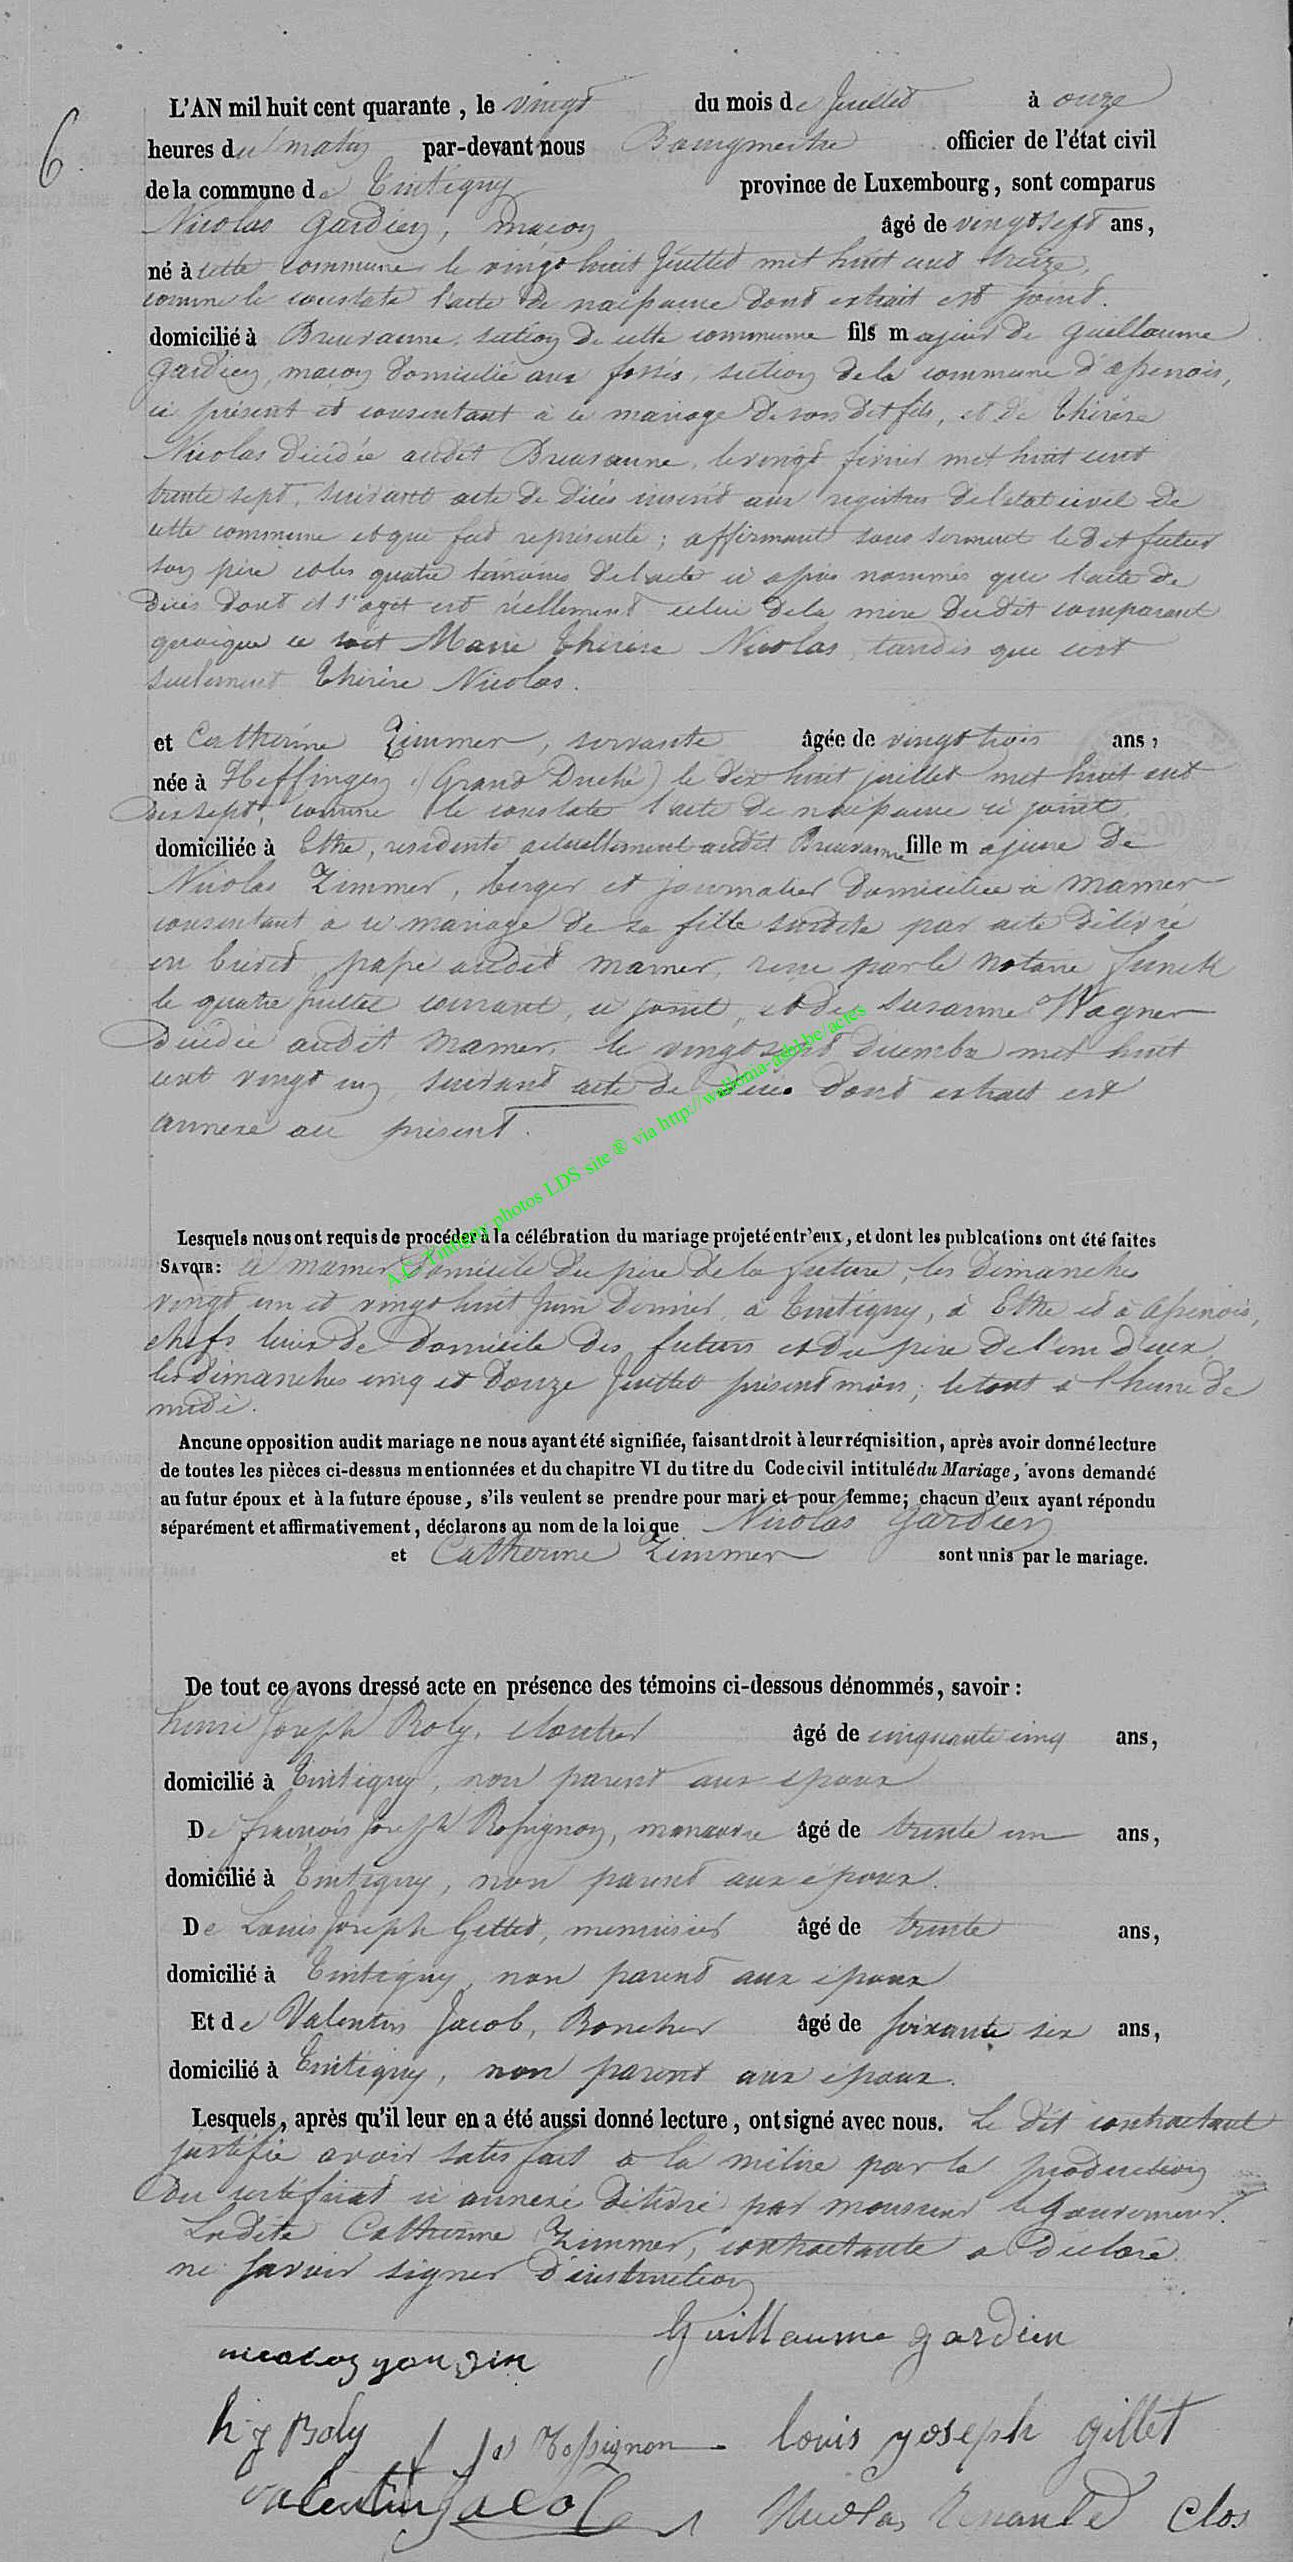 6.
L'AN mil huit cent quarante, le vingt du mois de Juillet à onze
heures du matin par-devant nous Bourgmestre officier de l'état civil
de la commune de Tintigny province de Luxembourg, sont comparus
Nicolas Gardien, maçon âgé de vingt sept ans,
né à cette commune le vingt huit Juillet mil huit cent treize,
comme le constate l'acte de naissance dont extrait est joint.
domicilié à Breuvanne, section de cette commune fils majeur de Guillaume
Gardien, maçon domicilié aux fossés, section de la commune d'assenois,
ci présent et consentant à ce mariage de son dit fils, et de Thérèse
Nicolas décédée audit Breuvanne, le vingt fevrier mil huit cent
trente sept, suivant acte de décès inscrit aux registres de l'etat civil de
cette commune et que fut représenté; affirmant sous serment le dit futur
son père et les quatre témoins de l'acte ci après nommés que l'acte de
décès dont il s'agit est réellement celui de la mère dudit comparant
quoique ce soit Marie Thérèse Nicolas, tandis que c'est
seulement Thérèse Nicolas.
et Catherine Zimmer, servante âgée de vingt trois ans,
née à Heffingen (Grand Duché) le dix huit juillet mil huit cent
dix sept, comme le constate l'acte de naissance ci joint,
domiciliée à Ethe, residente actuellement audit Breuvanne fille majeure de
Nicolas Zimmer, berger et journalier domicilié à Mamer
consentant à ce mariage de sa fille susdite par acte délivré
en brevet, passé audit Mamer, reçu par le Notaire Funck
le quatre juillet courant, ci joint, et de Susanne Wagner
décédée audit Mamer, le vingt sept décembre mil huit
cent vingt cinq, suivant acte de décès dont extrait est
annexé au présent.
A.C. Tintigny photos LDS site ® via http://wallonia-asbl.be/actes
Lesquels nous ont requis de procéder à la célébration du mariage projeté entr'eux, et dont les publcations ont été faites
SAVOIR: à Mamer domicile du père de la future, les dimanches
vingt un et vingt huit Juin dernier, à Tintigny, à Ethe et à assenois,
chefs lieux de domicile des futurs et du père de l'un d'eux,
les dimanches cinq et douze Juillet présent mois; le tout à l'heure de
midi.
Ancune opposition audit mariage ne nous ayant été signifiée, faisant droit à leur réquisition, après avoir donné lecture
de toutes les pièces ci-dessus mentionnées et du chapitre VI du titre du Code civil intitulé du Mariage, avons demandé
au futur époux et à la future épouse, s'ils veulent se prendre pour mari et pour femme; chacun d'eux ayant répondu
séparément et affirmativement, déclarons au nom de la loi que Nicolas Gardien
et Catherine Zimmer sont unis par le mariage.
De tout ce avons dressé acte en présence des témoins ci-dessous dénommés, savoir:
henri Joseph Roly, cloutier âgé de cinquante cinq ans,
domicilié à Tintigny, non parent aux époux
De françois Joseph Rossignon, manœuvre âgé de trente un ans,
domicilié à Tintigny, non parent aux époux.
De Louis Joseph Gillet, menuisier âgé de trente ans,
domicilié à Tintigny, non parent aux époux
Et de Valentin Jacob, Boucher âgé de soixante six ans,
domicilié à Tintigny, non parent aux époux.
Lesquels, après qu'il leur en a été aussi donné lecture, ont signé avec nous. Le dit contractant
justifie avoir satisfait à la milice par la production
du certificat ci annexé délivré par monsieur le Gouverneur.
Ladite Catherine Zimmer, contractante a déclaré
ne savoir signer d'instruction
Guillaume gardien
nicolas gardien
h j Roly f j Rossignon louis yoseph gillet
valentin jacob Nicolas Renauld Clos